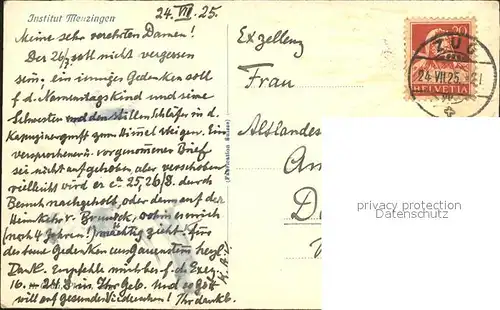 Institut Menzingen
24. VII. 25.
Meine sehr verehrten Damen!
Der 26/7. soll nicht vergessen
sein. ein inniges Gedenken soll
f. d. Namenstagskind und seine
Schwester und den stillen Schläfer in d.
Kapuzinergruft zum Himmel steigen. Ein
versprochener u. vorgenommener Brief
sei nicht aufgehoben, aber verschoben
vielleicht wird er c. 25, 26/8. durch
Besuch nachgeholt, oder dann auf der
Heimkehr v. Bruneck, wohin es mich
(nach 4 Jahren!) mächtig zieht. Für
das treue Gedenken herzl.
Dank. Empfehle mich f. d. Exerz.
16. - 24.8 in Ihr Geb. und so Gott
will auf gesundes Wiedersehen! Ihr dankb.
Exzellenz
Frau
Altlandes
An
D
ZUG
24. VII. 25
20
HELVETIA
privacy protection
Datenschutz